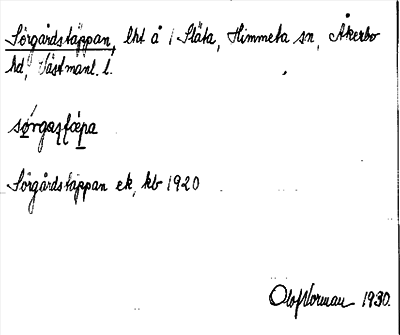 Sörgårdstäppan, lht å 1 Släta, Himmeta sn, Åkerbo
hd, Västmanl. l.
Sörgårdstäppan ek, kb 1920
Olof Norman 1930.